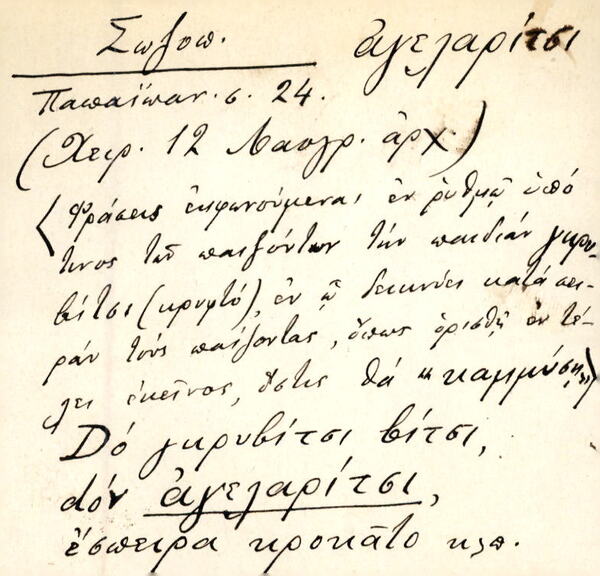 Σωζοπ. ἀγελαρίτσι
Παπαϊωάν. σ. 24.
(Χειρ. 12 Λαογρ. ἀρχ.)
⟨Φράσεις ἐκφωνούμεναι ἐν ρυθμῷ ὑπό
τινος τῶν παιζόντων τήν παιδιάν γκρυ-
βίτσι (κρυφτό), ἐν ᾧ δεικνύει κατά σει-
ράν τούς παίζοντας, ὅπως ὁρισθῇ ἐν τέ-
λει ἐκεῖνος, ὅστις θά "καμμύσῃ"⟩
Dό γκρυβίτσι βίτσι,
dόν ἀγελαρίτσι,
ἔσπειρα κροκᾶτο κλπ.